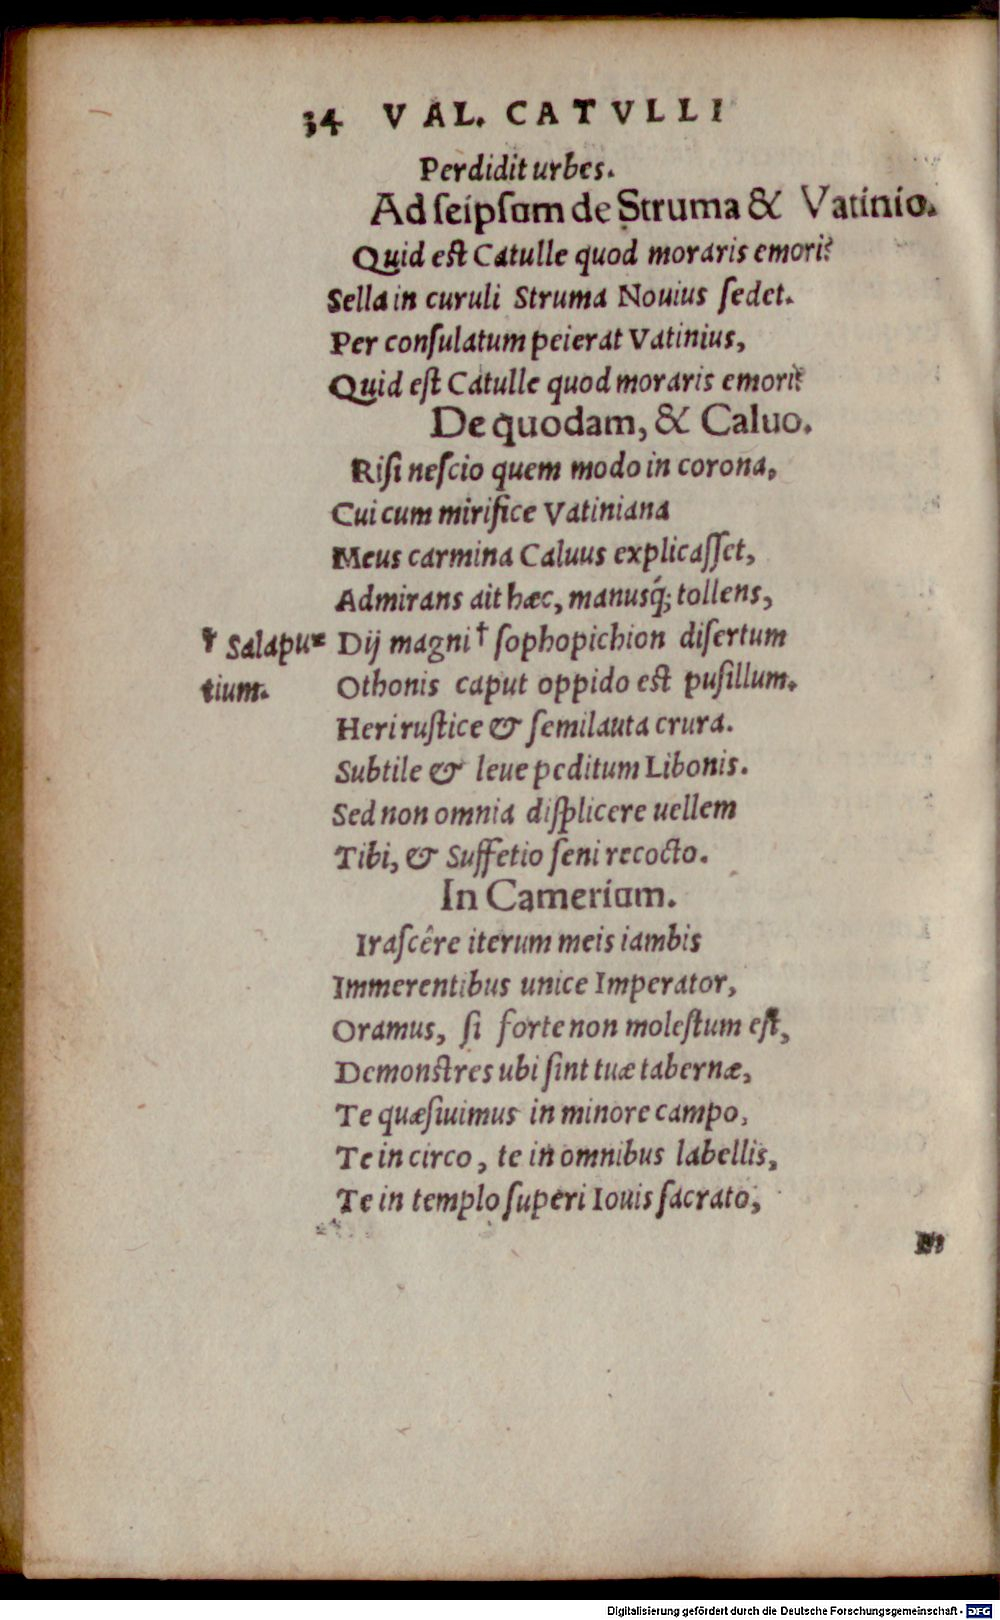 34 VAL. CATVLLI
Perdidit urbes.
Ad ſeipſum de Struma & Vatinio.
Quid est Catulle quod moraris emori?
Sella in curuli Struma Nouius ſedet.
Per conſulatum peierat Vatinius,
Quid eſt Catulle quod moraris emori?
De quodam, & Caluo.
Riſi neſcio quem modo in corona,
Cui cum mirifice Vatiniana
Meus carmina Caluus explicaſſet,
Admirans ait hæc, manusq́; tollens,
† Salapu= Dij magni † ſophopichion diſertum
tium. Othonis caput oppido est puſillum.
Heri ruſtice & ſemilauta crura.
Subtile & leue peditum Libonis.
Sed non omnia diſplicere uellem
Tibi, & Suffetio ſeni recocto.
In Camerium.
Iraſcêre iterum meis iambis
Immerentibus unice Imperator,
Oramus, ſi forte non moleſtum eſt,
Demonſtres ubi ſint tuæ tabernæ,
Te quæſiuimus in minore campo,
Te in circo, te in omnibus labellis,
Te in templo ſuperi Iouis ſacrato,
Digitalisierung gefördert durch die Deutsche Forschungsgemeinschaft - DFG